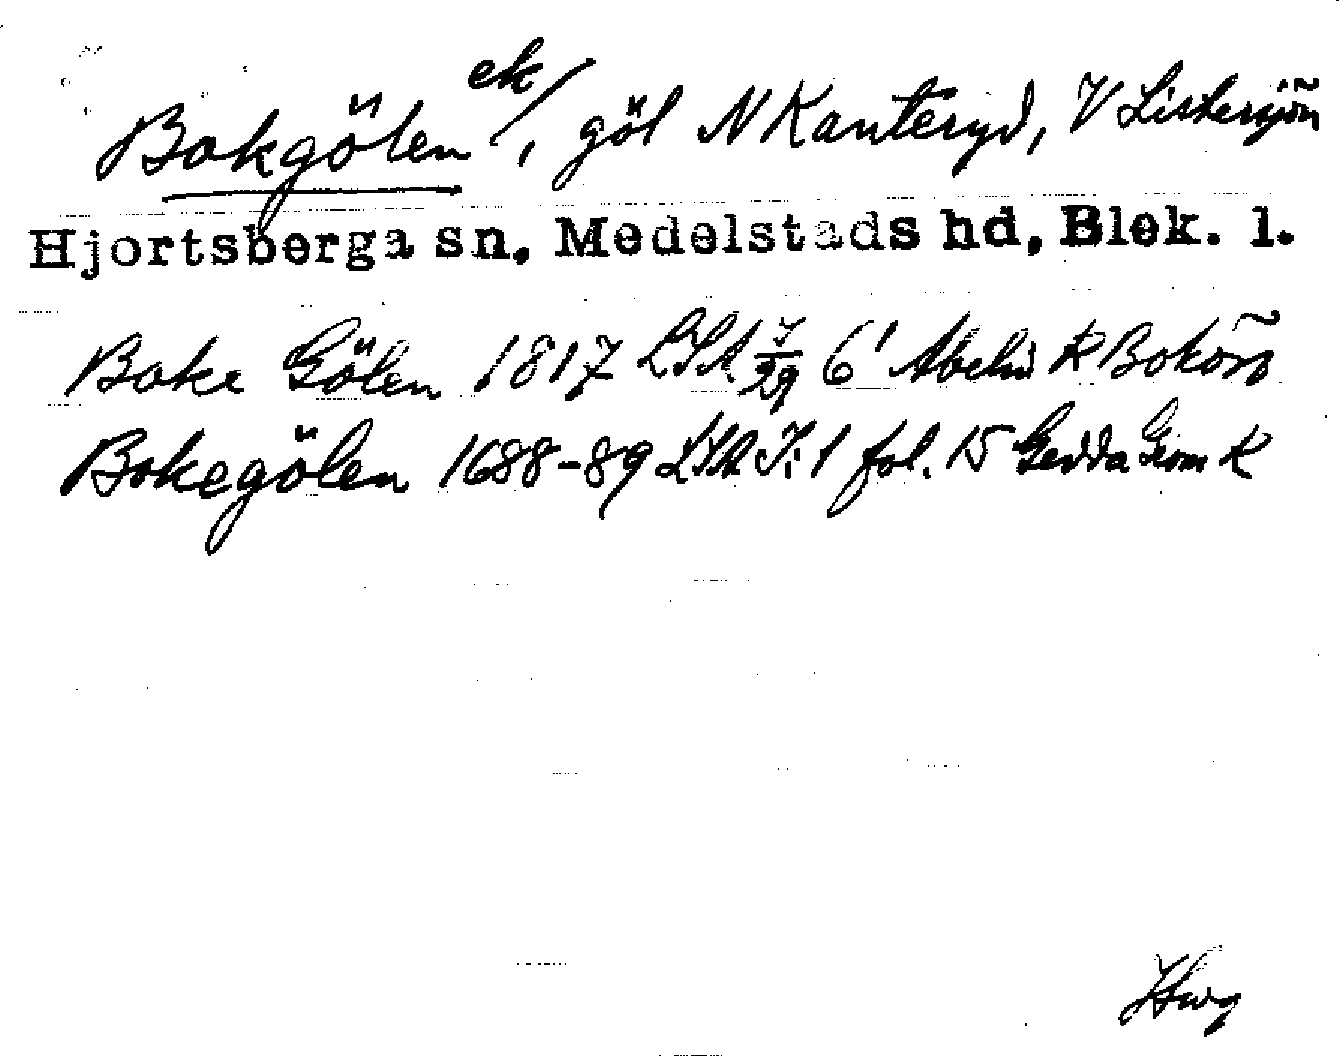 Bokgölen ek/, göl N Kanteryd, V Listersjön
Hjortsberga sn, Medelstads hd, Blek. l.
Boke Gölen 1817 LSA 7/29 6' Abelin K Bokön
Bokegölen 1688-89 LSA I:1 fol. 15 Gedda Geom K